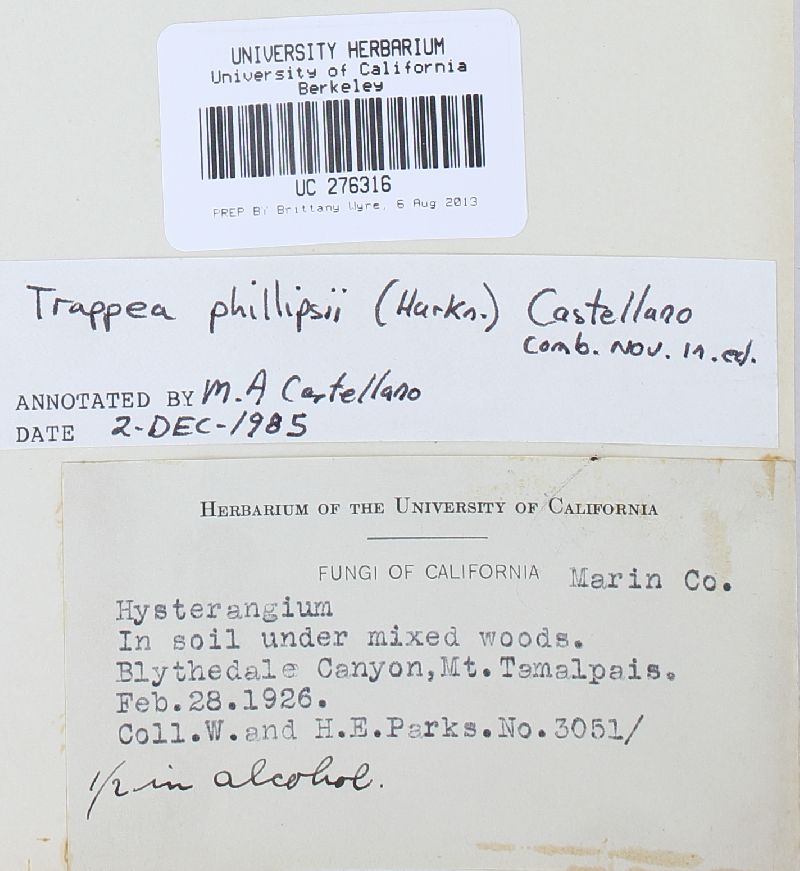 UNIVERSITY HERBARIUM
University of California
Berkeley
UC 276316
PREP BY Brittany Wyre, 6 Aug 2013
Trappea phillipsii (Harkn.) Castellano
comb. nov. in. ed.
ANNOTATED BY M.A Castellano
DATE 2-DEC-1985
HERBARIUM OF THE UNIVERSITY OF CALIFORNIA
FUNGI OF CALIFORNIA Marin Co.
Hysterangium
In soil under mixed woods.
Blythedale Canyon,Mt.Tamalpais.
Feb.28.1926.
Coll.W.and H.E.Parks.No.3051/
1/2 in alcohol.